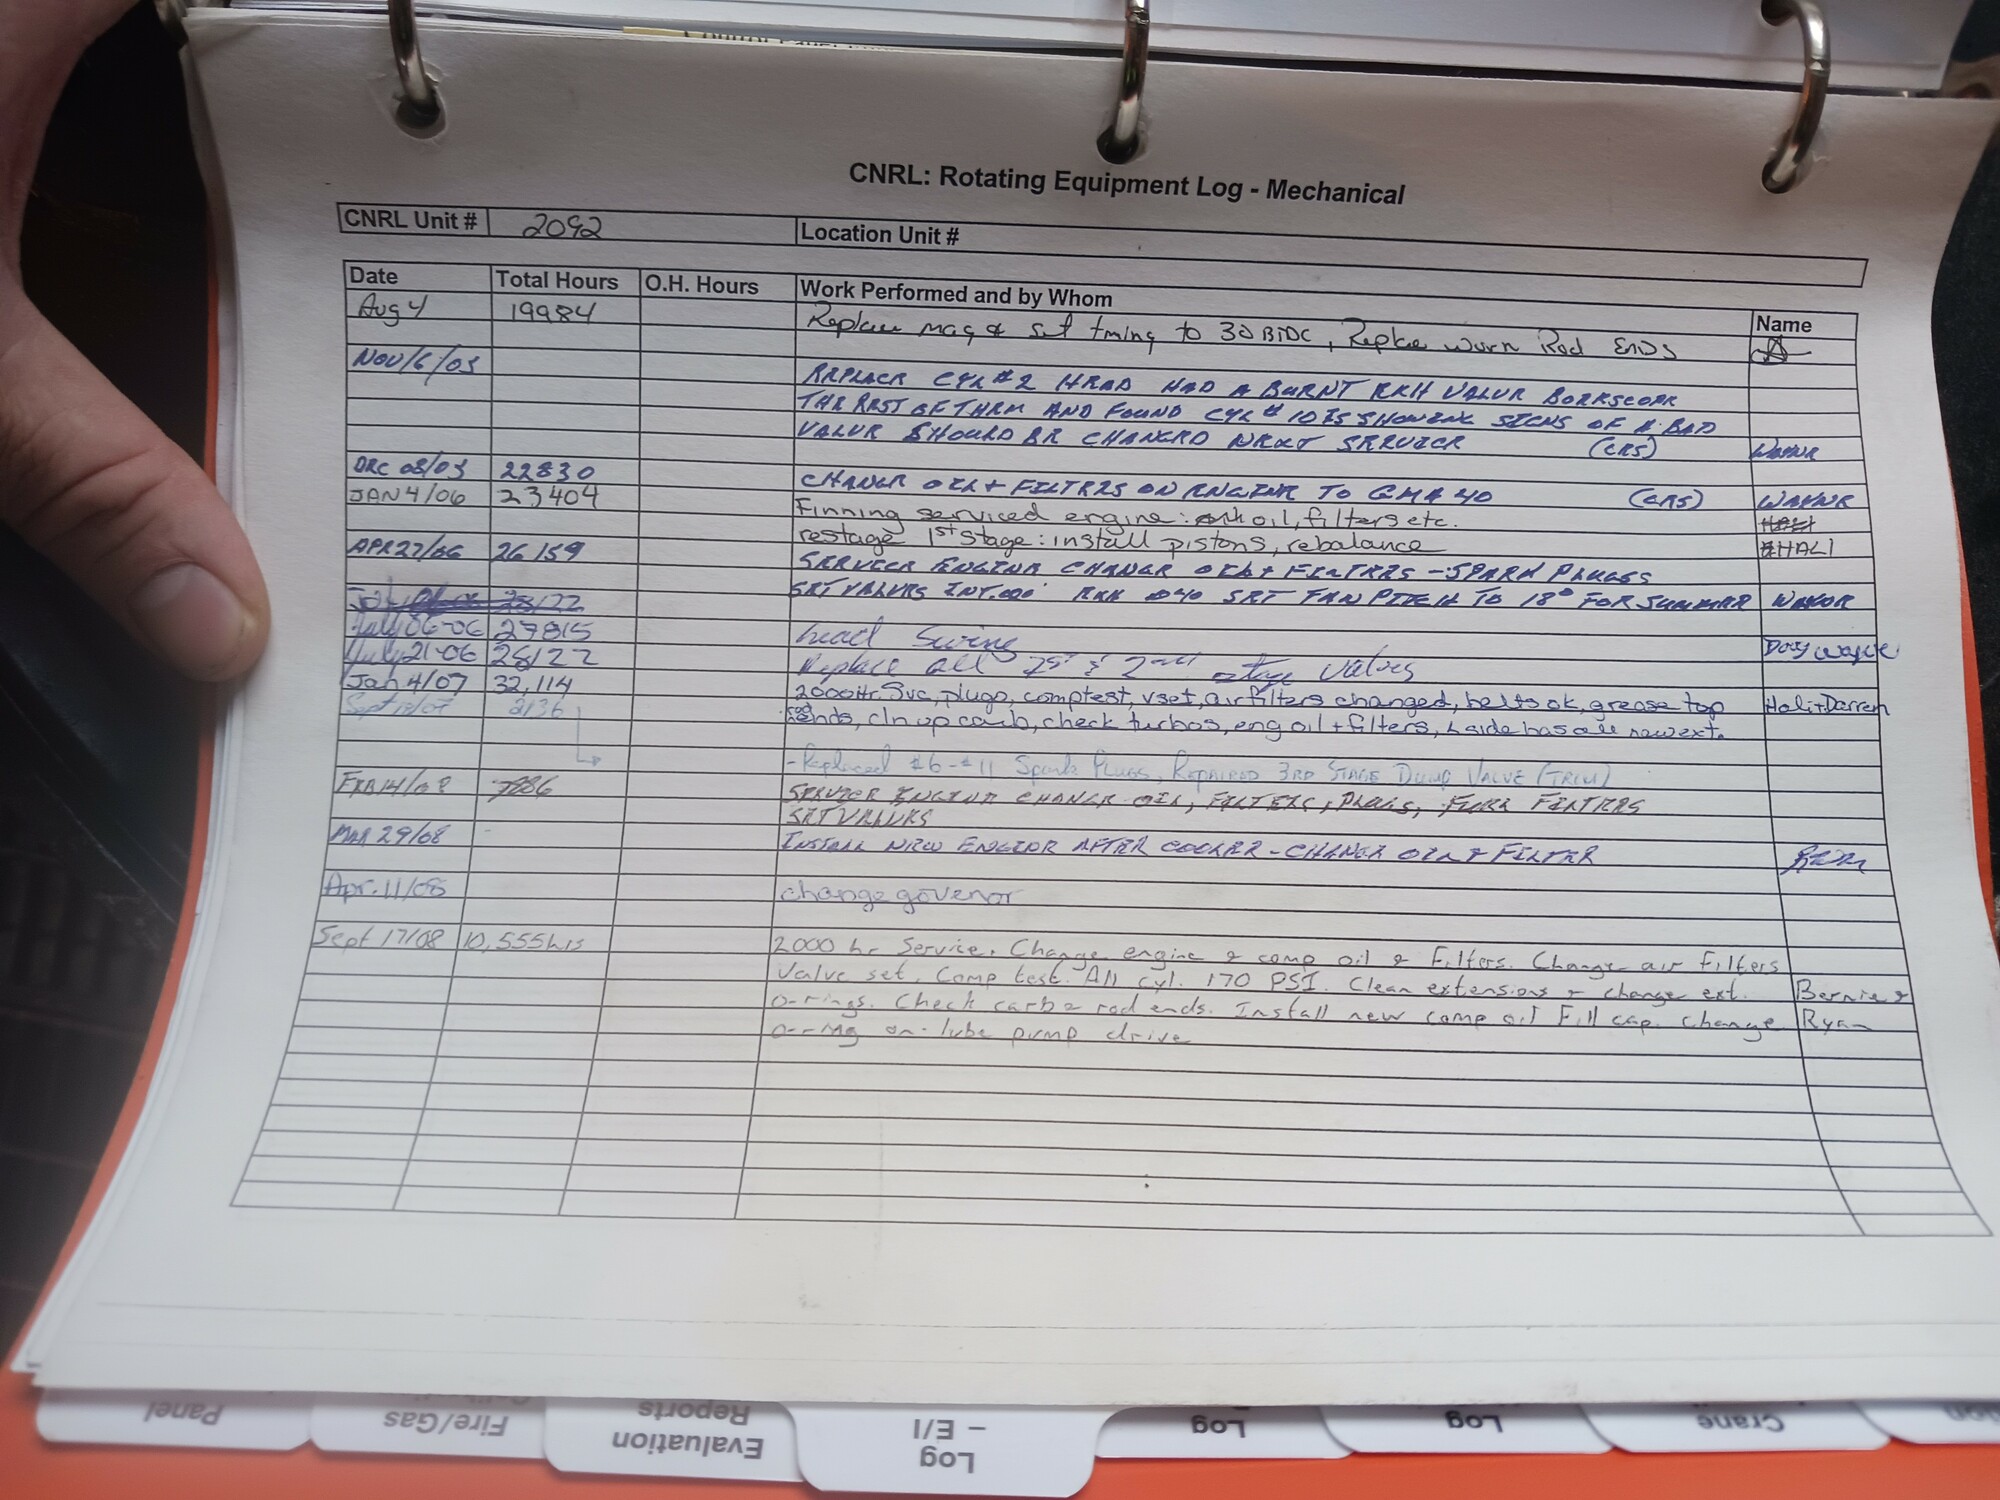 CNRL: Rotating Equipment Log - Mechanical
CNRL Unit # 2092 Location Unit #
Date Total Hours O.H. Hours Work Performed and by Whom Name
Aug 4 19984 Replace mag & set tming to 30 BTDC, Replace worn Rod ENDS
NOV/6/05 REPLACE CYL #2 HEAD HAD A BURNT EXH VALVE BORESCOPE
THE REST OF THEM AND FOUND CYL # 10 IS SHOWING SIGNS OF A BAD
VALVE SHOULD BE CHANGED NEXT SERVICE (CRS) WAYNE
DEC 08/05 22830 CHANGE OIL + FILTERS ON ENGINE TO GMA 40 (CRS) WAYNE
JAN 4/06 23404 Finning serviced engine: oil, filters etc.
restage 1st stage: install pistons, rebalance HALI
APR 27/06 26159 SERVICE ENGINE CHANGE OIL + FILTERS - SPARK PLUGGS
28122 SET VALVES INT. EXH SET FAN PITCH TO 18° FOR SUMMER WAYNE
July 06-06 27815 head Swing Doug Wayne
July 21-06 28122 Replace all 1st & 2nd stage Valves
Jan 4/07 32,114 2000Hr. Svc, plugs, comptest, vset, airfilters changed, belts ok, grease top Hali+Darren
Sept 2136 ends, cln up carb, check turbos, eng oil + filters, side has all new ext.
-Replaced #6-#11 Spark Plugs, Repaired 3rd Stage Dump Valve (TRIM)
FEB 14/08 7886 SERVICE ENGINE CHANGE OIL, FILTERS, PLUGS, FUEL FILTERS
SET VALVES
MAR 29/08 INSTALL NEW ENGINE AFTER COOLER - CHANGE OIL & FILTER
Apr. 11/08 change govenor
Sept 17/08 10,555hrs 2000 hr Service. Change engine & comp oil & Filters. Change air filters
Valve set. Comp test. All cyl. 170 PSI. Clean extensions & change ext. Bernie &
o-rings. Check carb & rod ends. Install new comp oil Fill cap. Change Ryan
o-ring on lube pump drive
Panel
Fire/Gas
Evaluation
Reports
Log
- E/I
Log
Log
Crane